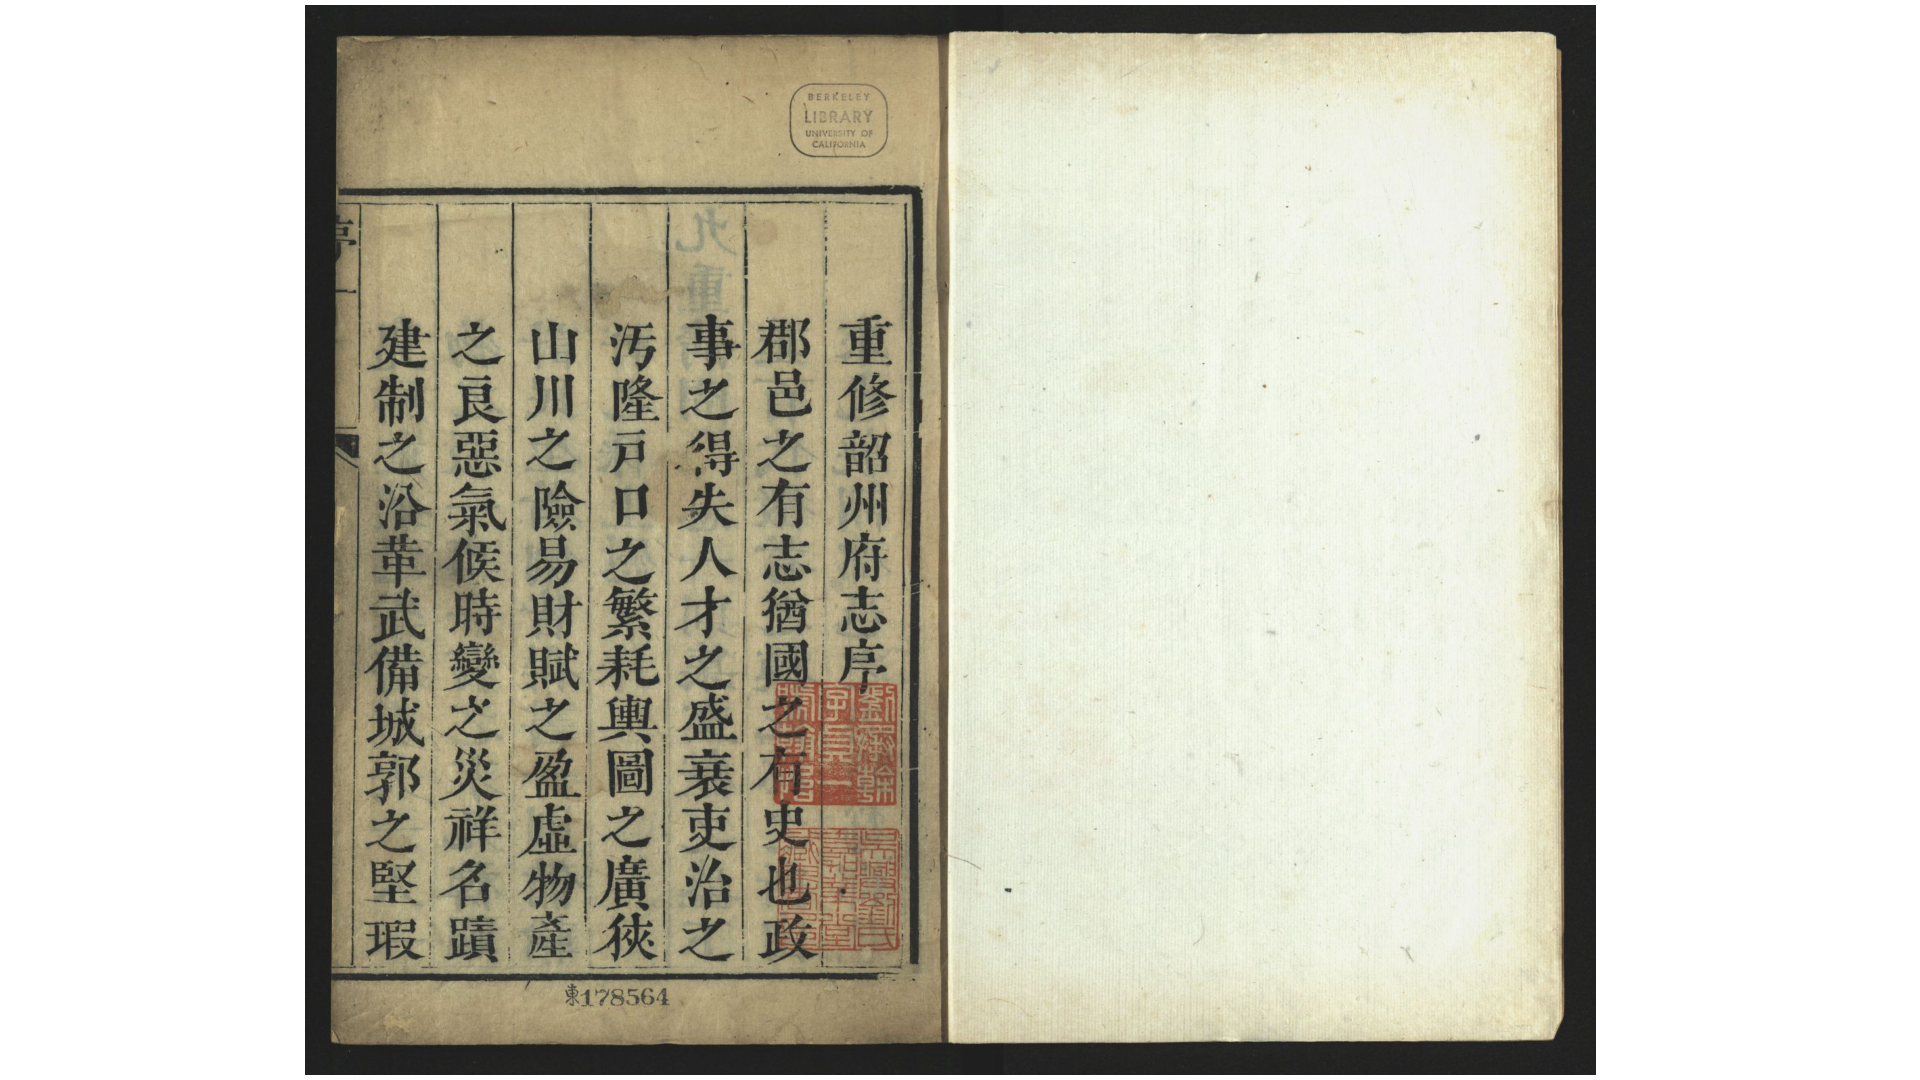 重修韶州府志序
郡邑之有志猶國之有史也政
事之得失人才之盛衰吏治之
汚隆戸口之繁耗輿圖之廣狹
山川之險易財賦之盈虛物產
之良惡氣候時變之災祥名蹟
建制之沿革武備城郭之堅瑕
序一
劉承幹
字貞一
號翰怡
吳興劉氏
嘉業堂
藏書印
BERKELEY
LIBRARY
UNIVERSITY OF
CALIFORNIA
東178564